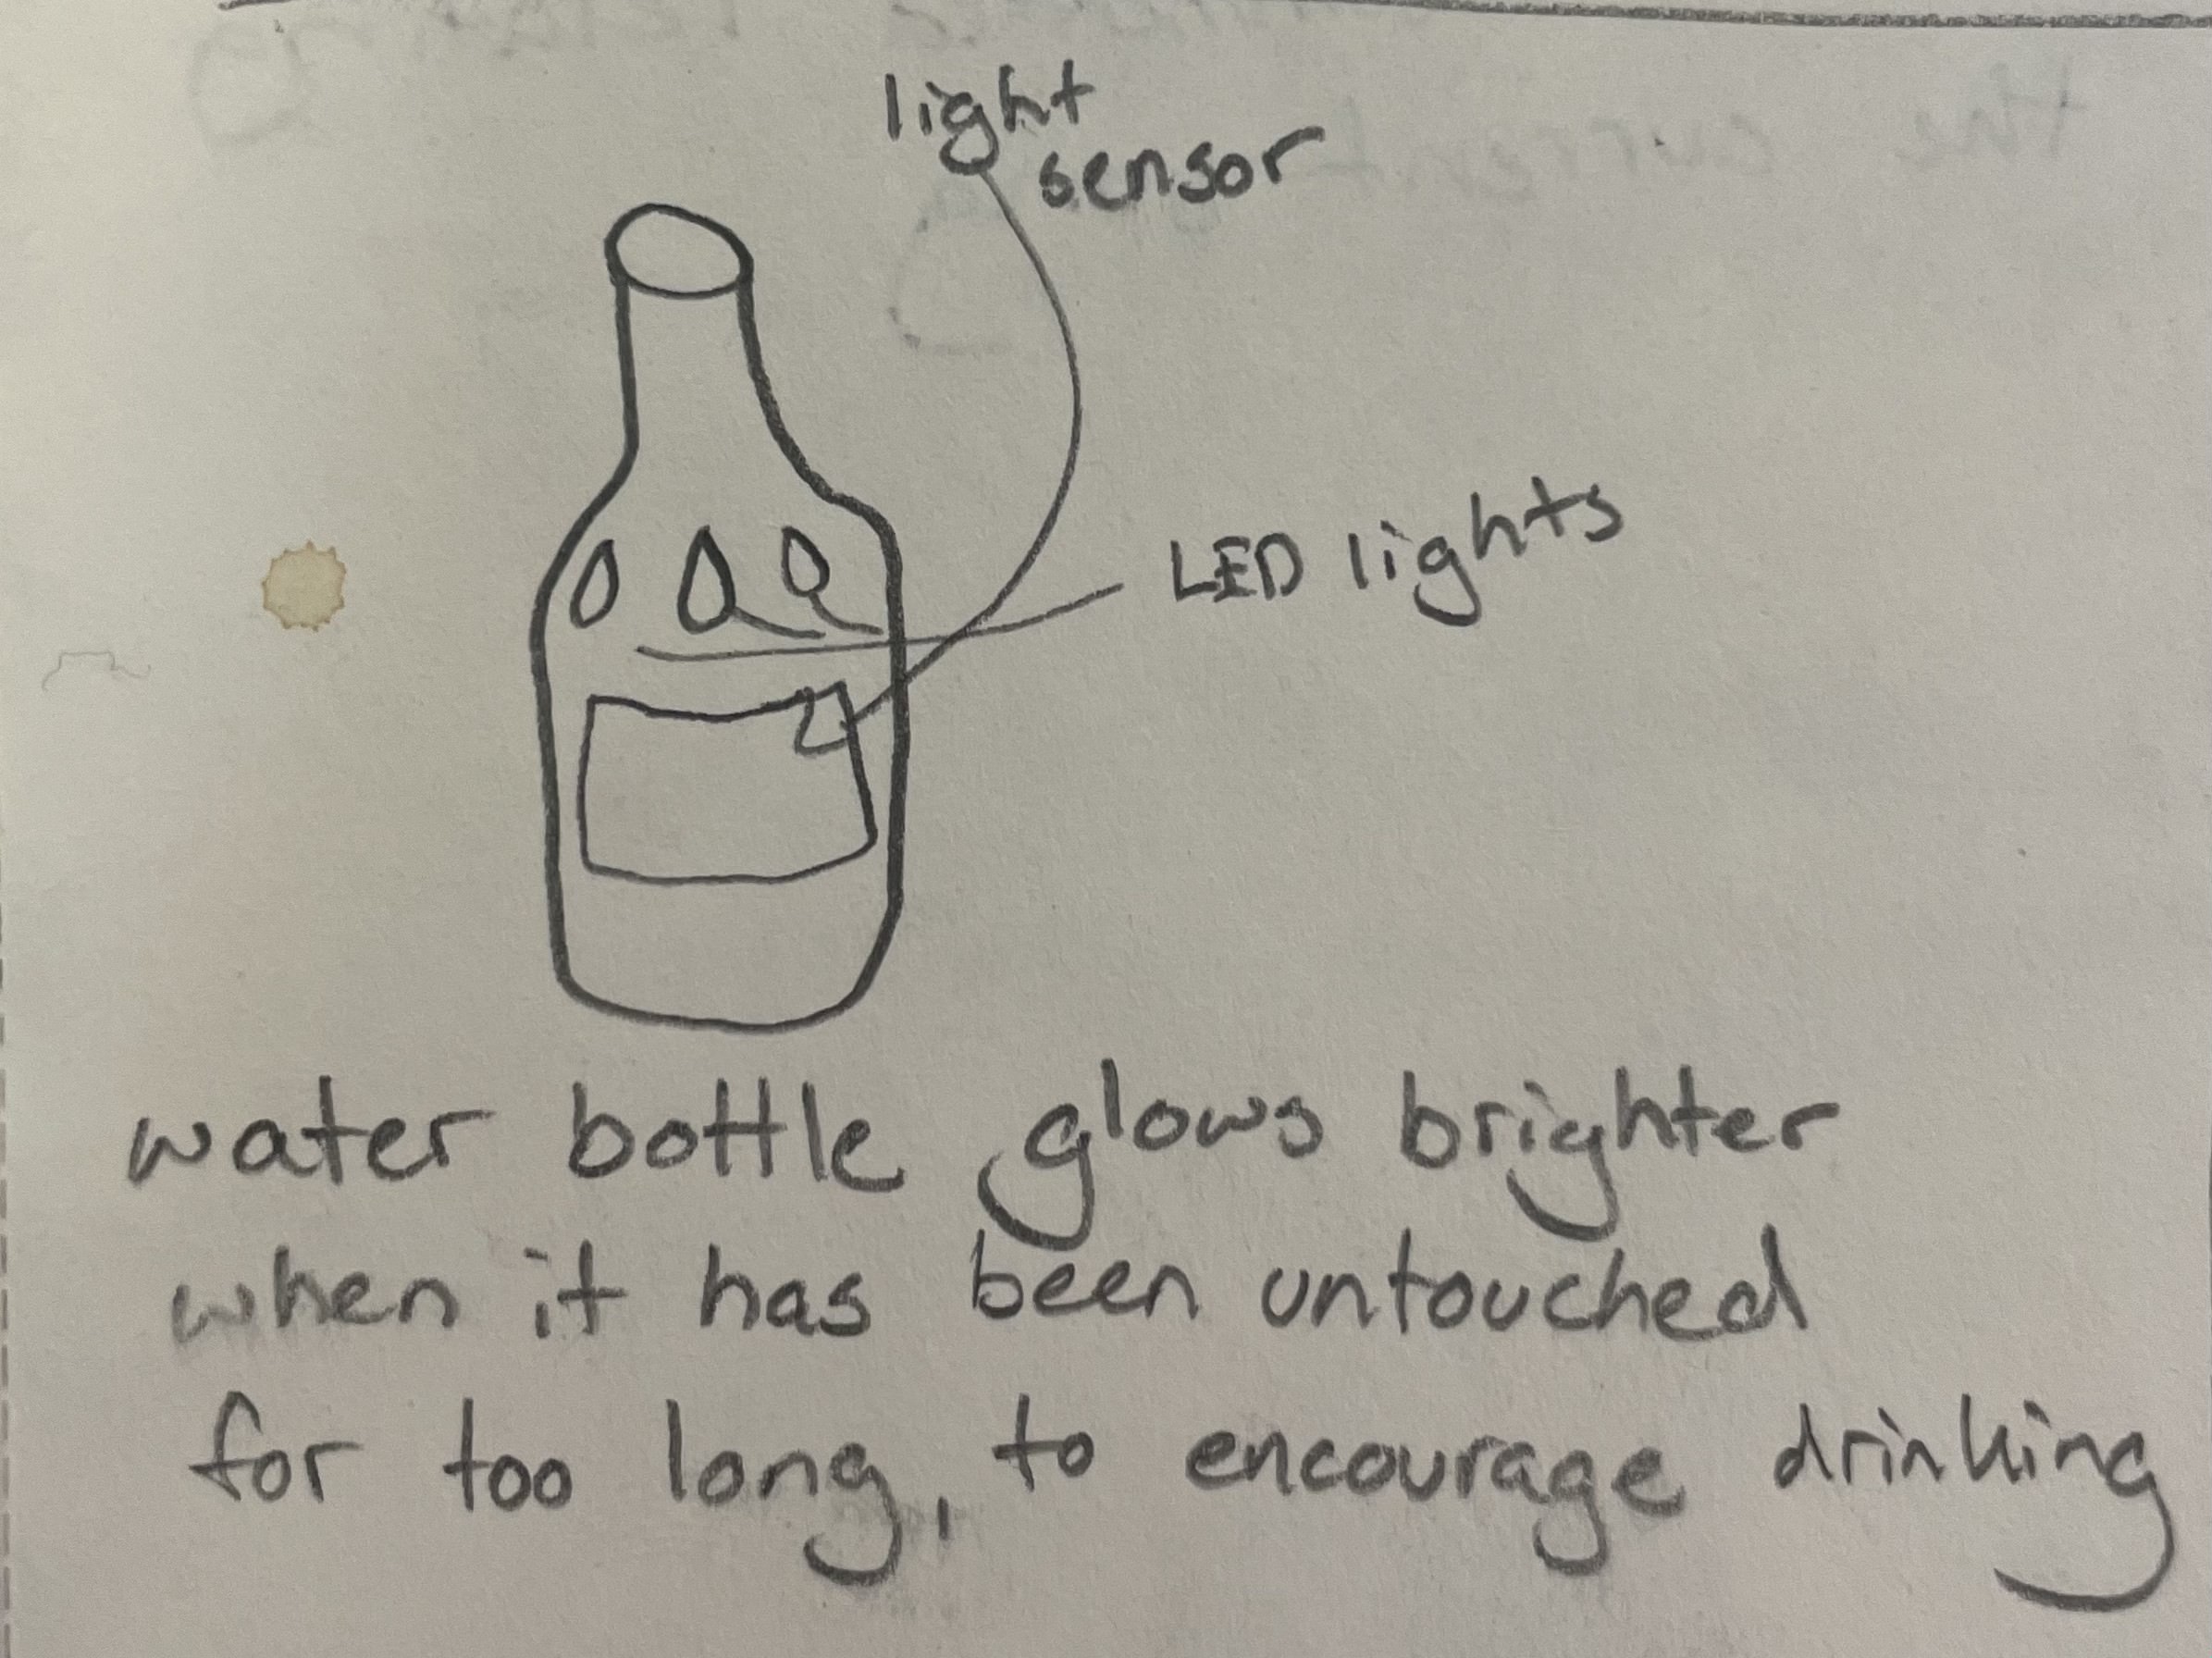 light
sensor
LED lights
water bottle glows brighter
when it has been untouched
for too long, to encourage drinking
the current